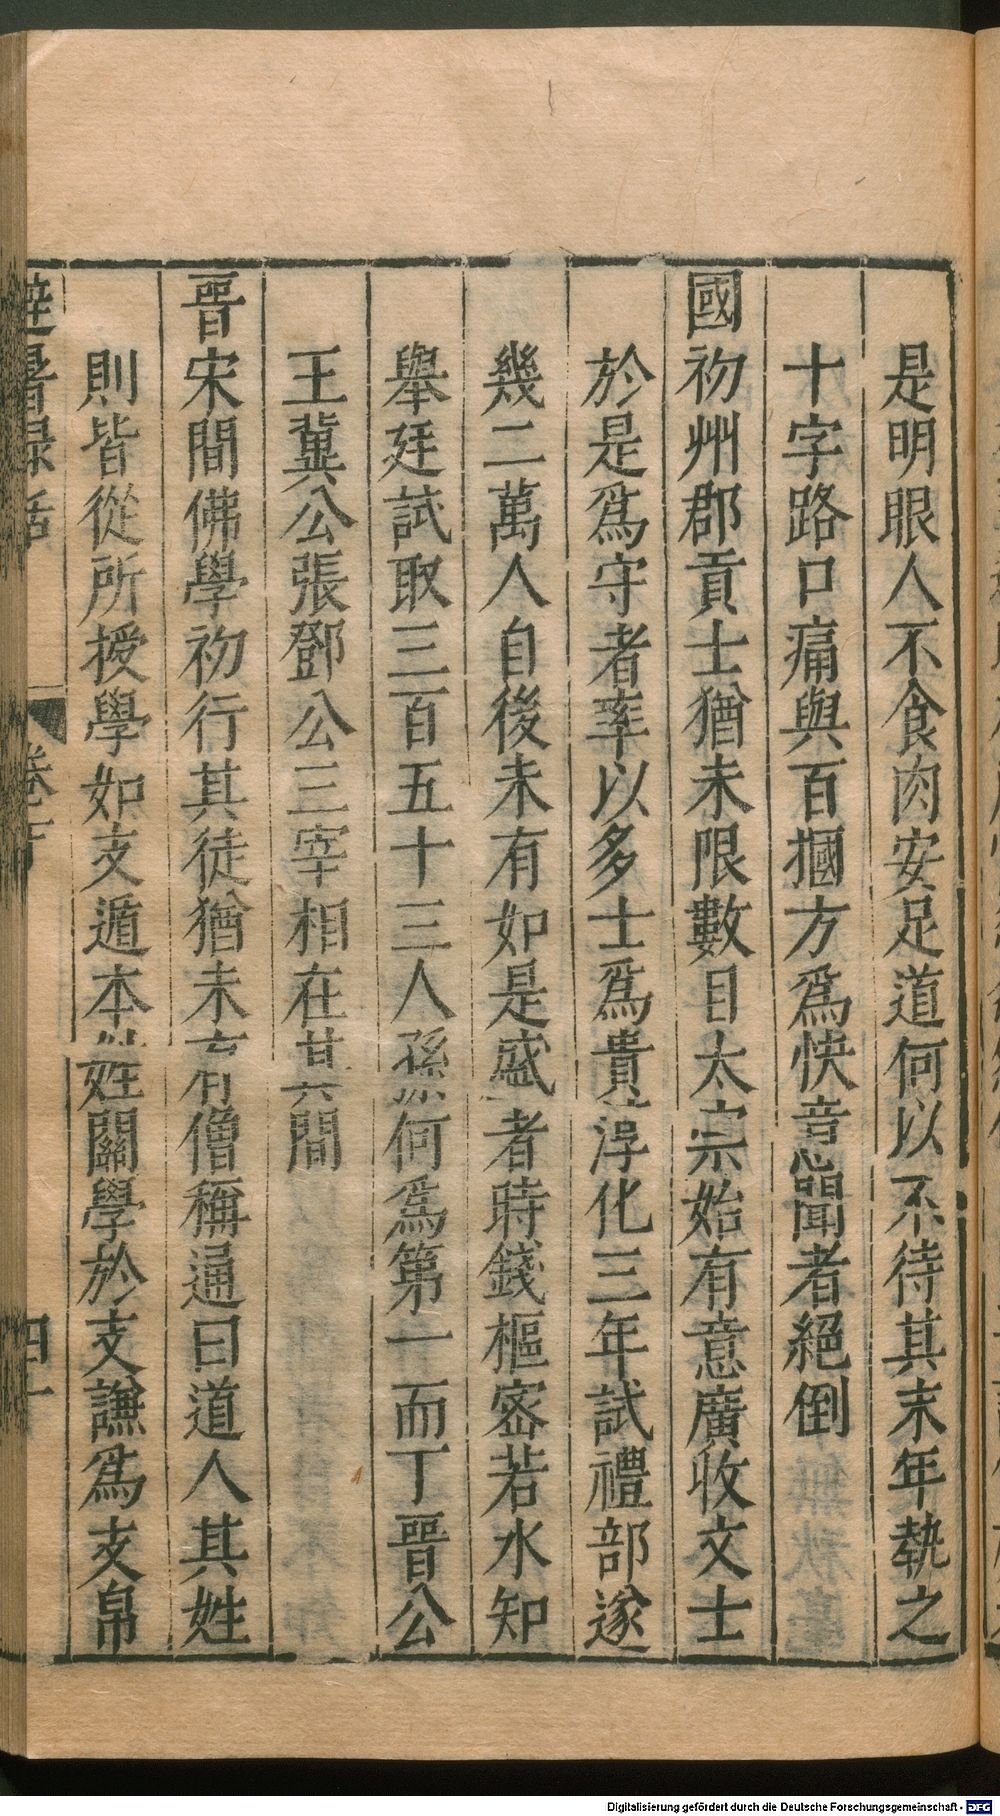 是明眼人不食肉安足道何以不待其末年執之
十字路口痛與百摑方爲快意聞者絕倒
國初州郡貢士猶未限數目太宗始有意廣收文士
於是爲守者率以多士爲貴淳化三年試禮部遂
幾二萬人自後未有如是盛者時錢樞密若水知
舉廷試取三百五十三人孫何爲第一而丁晉公
王冀公張鄧公三宰相在其間
晉宋間佛學初行其徒猶未有僧稱通曰道人其姓
則皆從所授學如支遁本姓關學於支謙爲支帛
避暑錄話 卷下 四十
Digitalisierung gefördert durch die Deutsche Forschungsgemeinschaft - DFG